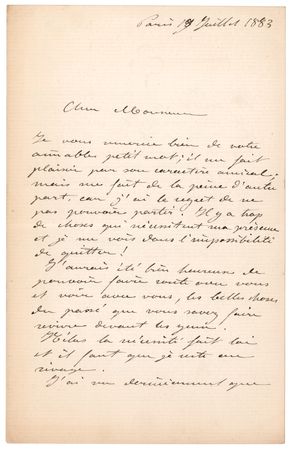 Paris 19 Juillet 1883
Cher Monsieur
Je vous remercie bien de votre
aimable petit mot; il me fait
plaisir par son caractère amical,
mais me fait de la peine d'autre
part, car j'ai le regret de ne
pas pouvoir partir. Il y a trop
de choses qui nécessitent ma présence
et je me vois dans l'impossibilité
de quitter!
J'aurais été bien heureuse de
pouvoir faire route avec vous
et voir avec vous, les belles choses
du passé que vous savez faire
revivre devant les yeux.
Hélas la nécessité fait loi
et il faut que je reste au
rivage.
J'ai vu dernièrement que